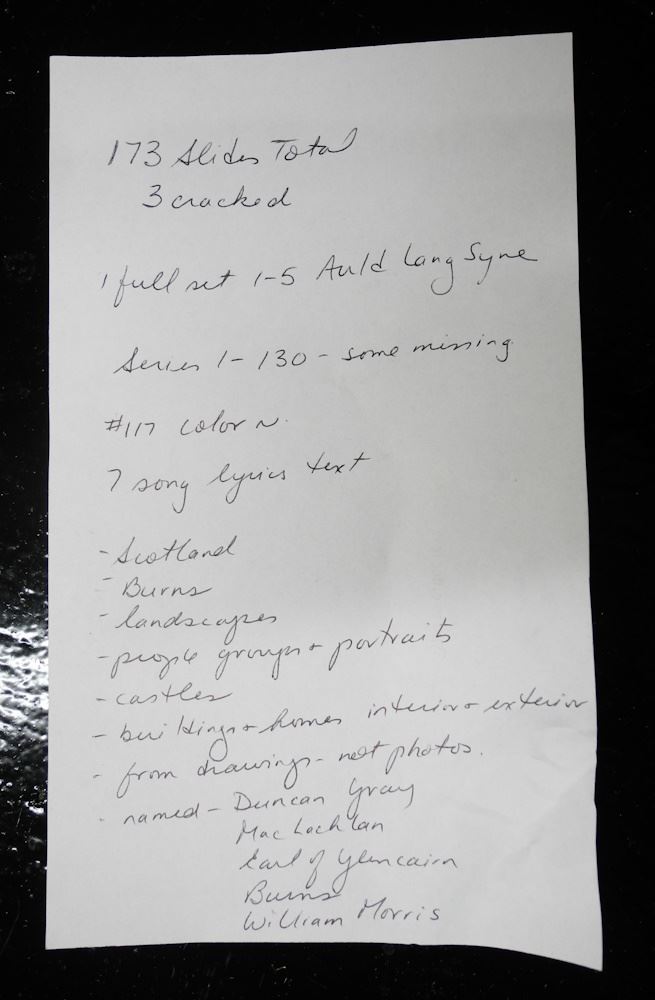 173 Slides Total
3 cracked
1 full set 1-5 Auld Lang Syne
Series 1-130 - some missing
#117 color
7 song lyrics text
- Scotland
- Burns
- landscapes
- people groups + portraits
- castles
- buildings + homes interior + exterior
- from drawings - not photos.
- named - Duncan Gray
MacLochlan
Earl of Glencairn
Burns
William Morris